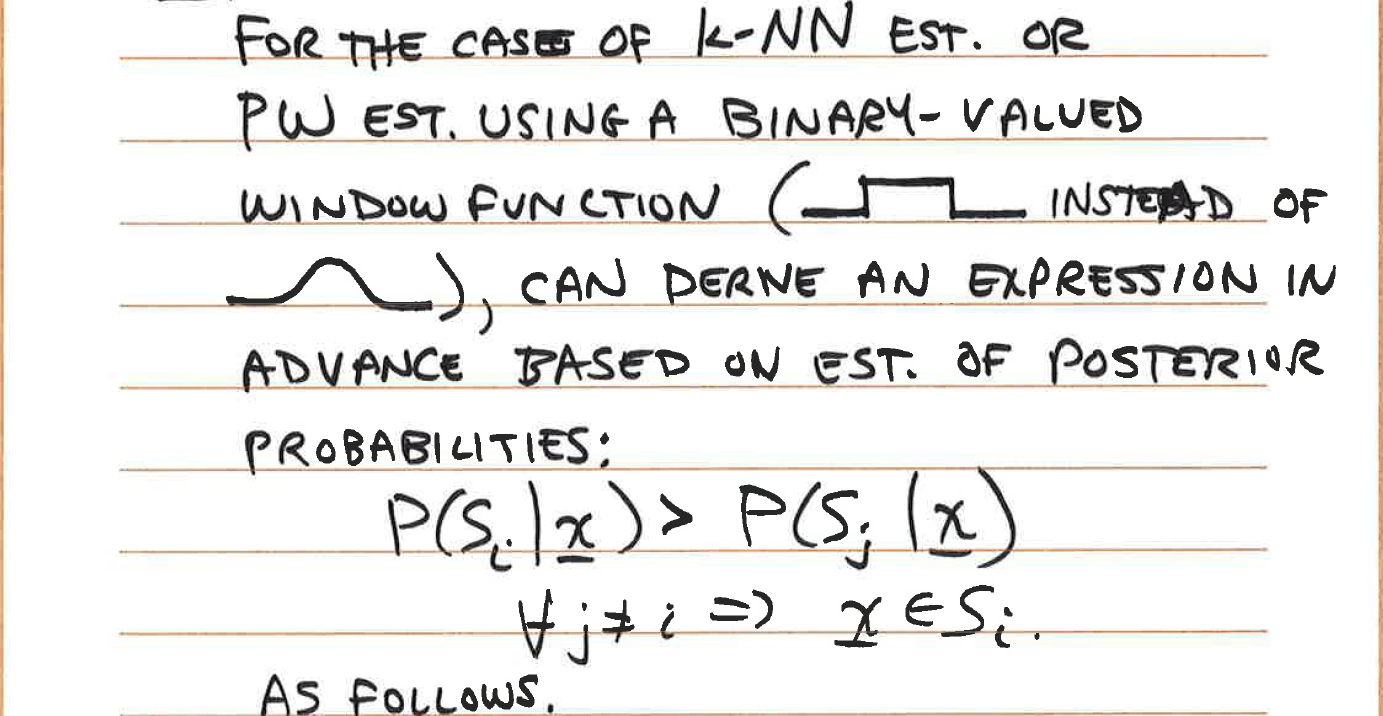 FOR THE CASE OF k-NN EST. OR
PW EST. USING A BINARY-VALUED
WINDOW FUNCTION ( INSTEAD OF
), CAN DERIVE AN EXPRESSION IN
ADVANCE BASED ON EST. OF POSTERIOR
PROBABILITIES:
P(S_i | x) > P(S_j | x)
∀ j ≠ i => x ∈ S_i.
AS FOLLOWS.